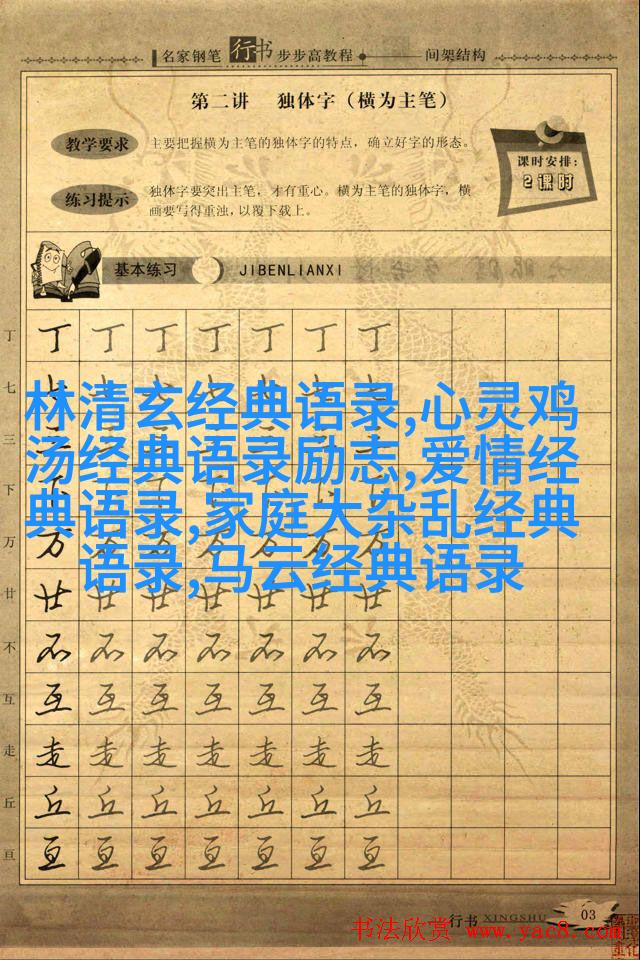 名家钢笔 行书 步步高教程 间架结构
第二讲 独体字（横为主笔）
教学要求 主要把握横为主笔的独体字的特点，确立好字的形态。
课时安排：
2课时
练习提示 独体字要突出主笔，才有重心。横为主笔的独体字，横
画要写得重浊，以覆下载上。
基本练习 JIBENLIANXI
丁 丁 丁 丁 丁 丁 丁 丁
七
林清玄经典语录,心灵鸡
三
汤经典语录励志,爱情经
下
典语录,家庭大杂乱经典
万 万
语录,马云经典语录
廿 廿 廿 廿 廿 廿 廿 廿
不 不 不 不 不 不 不 不
互 互 互 互 互 互 互 互
走 走 走 走 走 走 走 走
丘 丘 丘 丘 丘 丘 丘 丘
亘 亘 亘 亘 亘 亘 亘 亘
行书 XINGSHU 03
书法欣赏 www.yac8.com